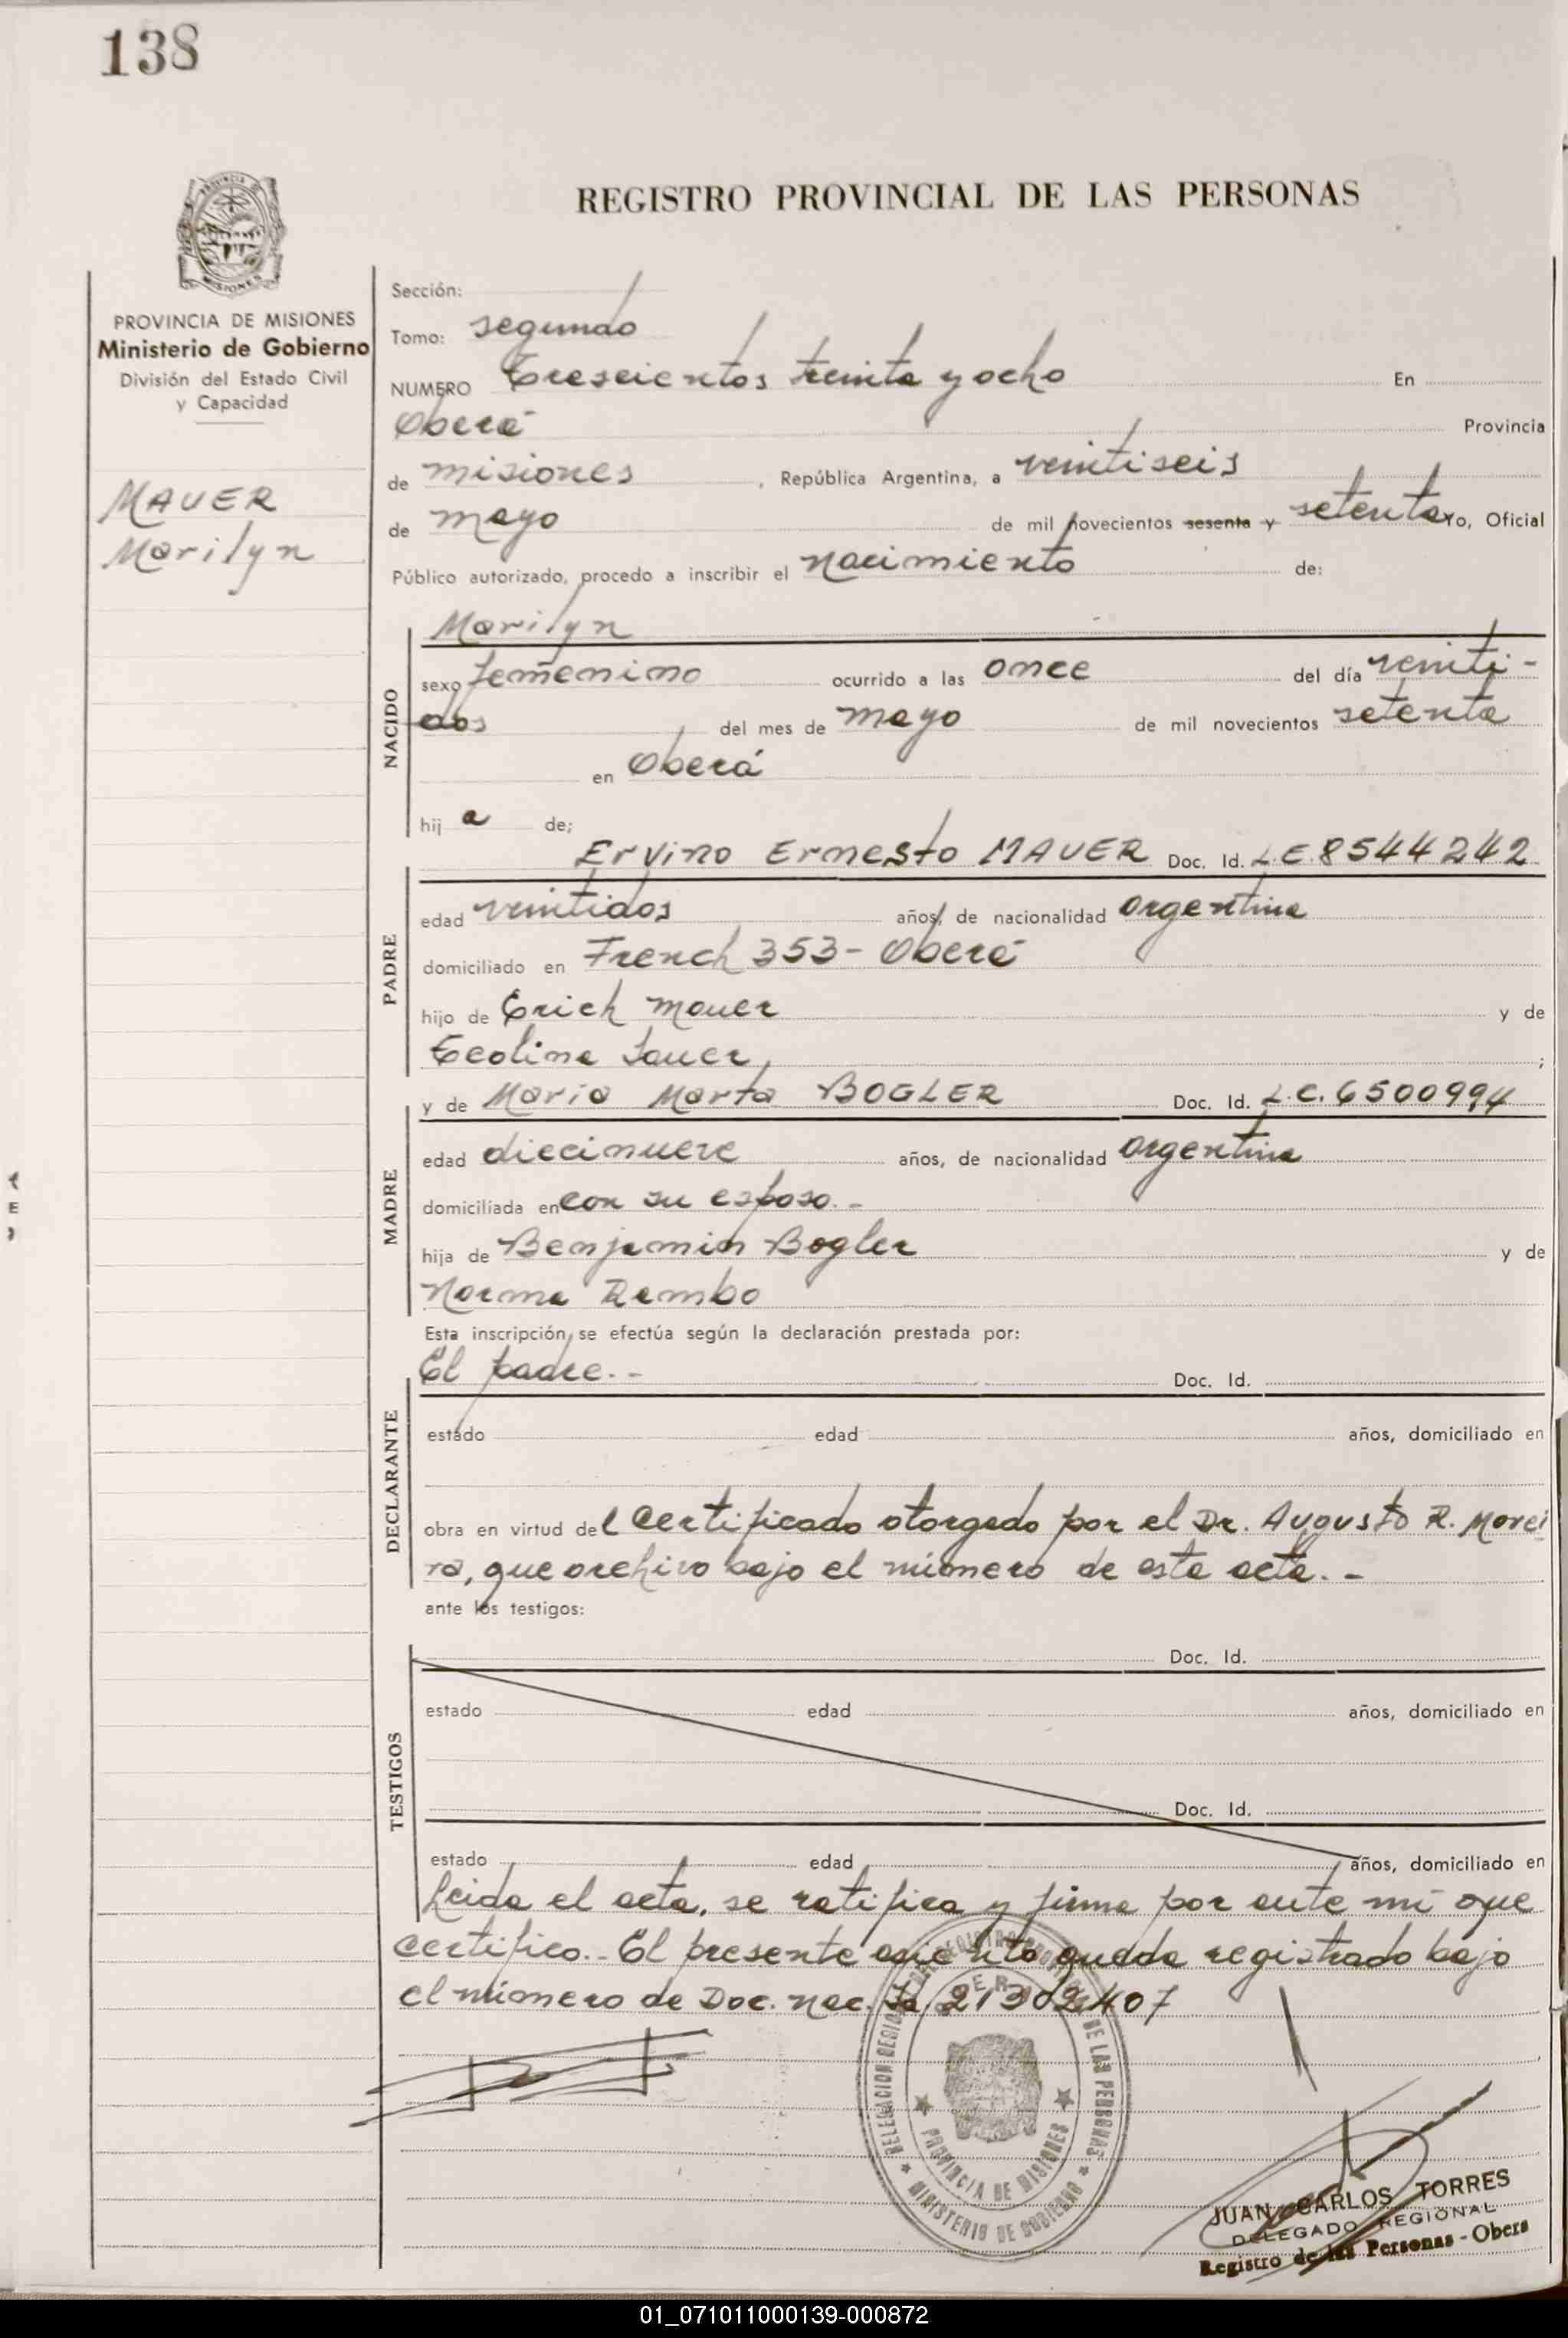 138
REGISTRO PROVINCIAL DE LAS PERSONAS
PROVINCIA DE MISIONES
Ministerio de Gobierno
División del Estado Civil
y Capacidad
MAUER
Marilyn
Sección:
Tomo: segundo
NUMERO Trescientos treinta y ocho En
Oberá Provincia
de misiones, República Argentina, a veintiseis
de mayo de mil novecientos sesenta y setenta Yo, Oficial
Público autorizado, procedo a inscribir el nacimiento de:
Marilyn
NACIDO
sexo femenino ocurrido a las once del día veinti-
dos del mes de mayo de mil novecientos setenta
en Oberá
hija de;
Ervino Ernesto MAUER Doc. Id. L.E. 8544242
PADRE
edad veintidos años, de nacionalidad argentina
domiciliado en French 353 - Oberá
hijo de Erich Mauer y de
Teolina Sauer, ;
y de Maria Marta BOGLER Doc. Id. L.C. 6500994
MADRE
edad diecinueve años, de nacionalidad argentina
domiciliada en con su esposo.-
hija de Benjamin Bogler y de
Norma Rambo
Esta inscripción se efectúa según la declaración prestada por:
El padre.- Doc. Id.
DECLARANTE
estado edad años, domiciliado en
obra en virtud del certificado otorgado por el Dr. Augusto R. Morei
ra, que archivo bajo el número de esta acta.-
ante los testigos:
TESTIGOS
Doc. Id.
estado edad años, domiciliado en
Doc. Id.
estado edad años, domiciliado en
Leida el acta, se ratifica y firma por ante mi que
certifico.- El presente queda registrado bajo
el número de Doc. nac. 21302407
DELEGACION REGISTRO PROVINCIAL DE LAS PERSONAS
OBERA
PROVINCIA DE MISIONES
MINISTERIO DE GOBIERNO
JUAN CARLOS TORRES
DELEGADO REGIONAL
Registro de las Personas - Obera
01_071011000139-000872